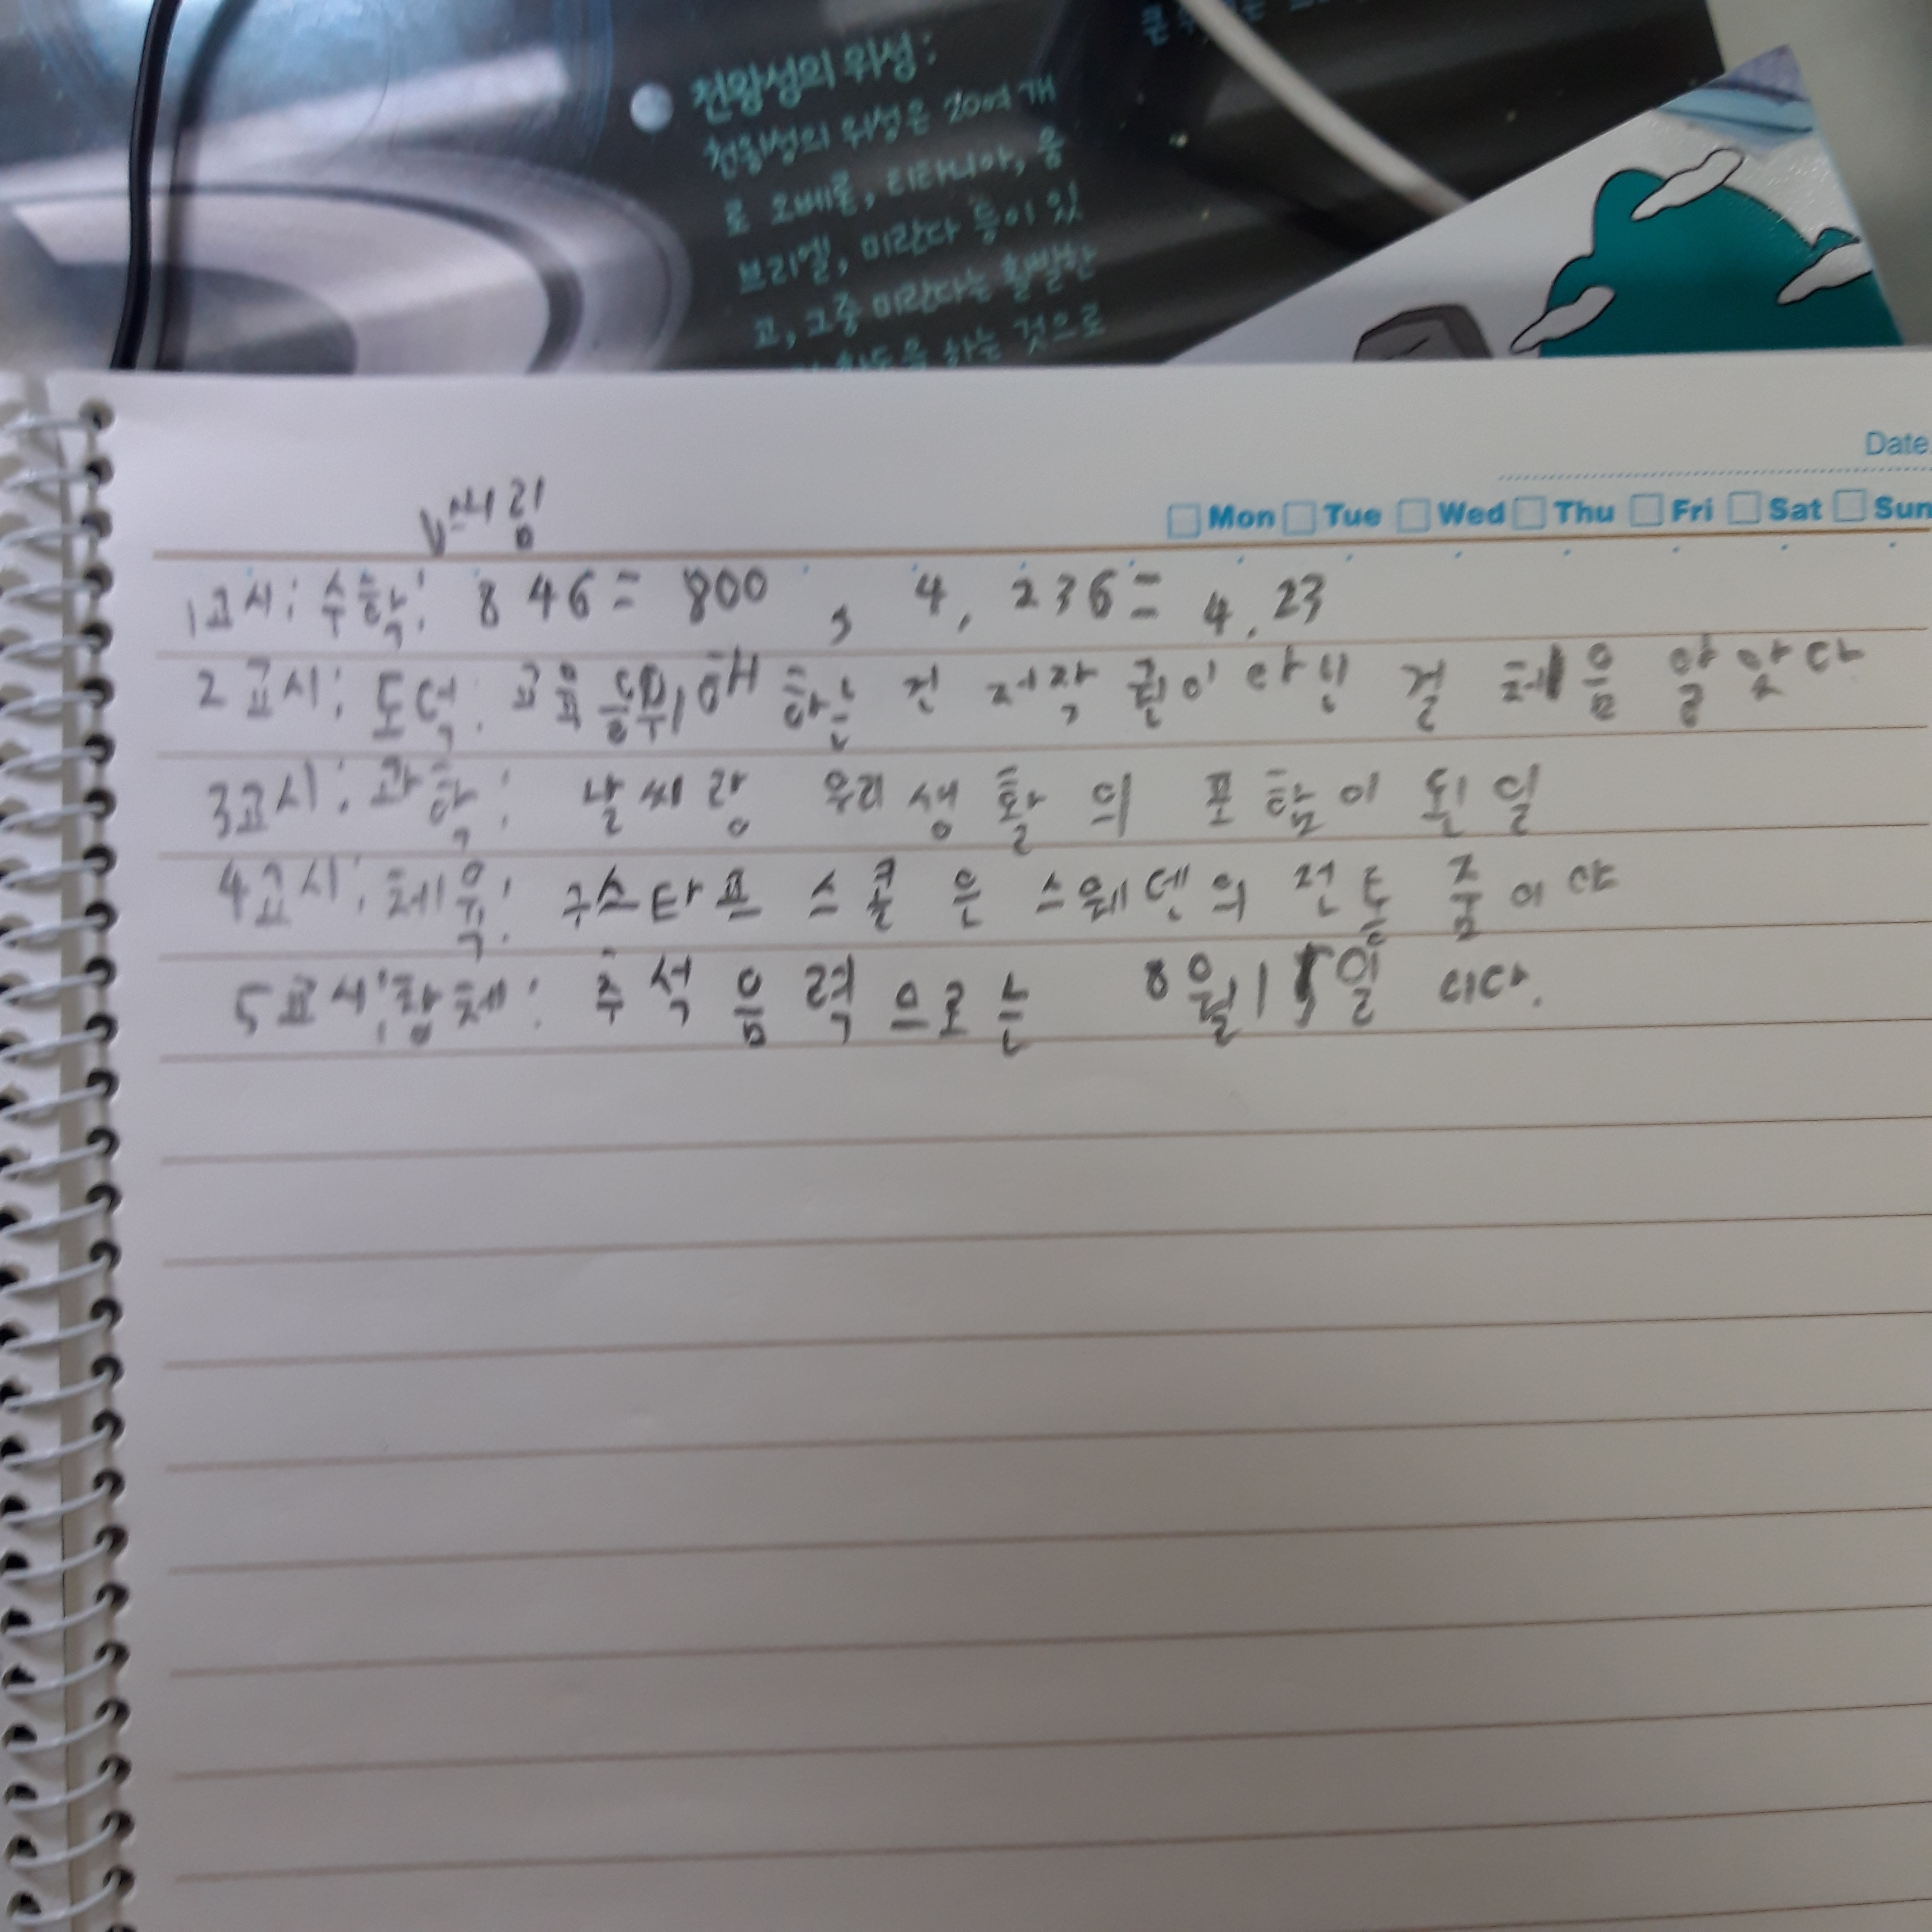 천왕성의 위성:
천왕성의 위성은 20여 개
로 오베론, 티타니아, 움
브리엘, 미란다 등이 있
고, 그중 미란다는 활발한
을 하는 것으로
Date.
Mon Tue Wed Thu Fri Sat Sun
버림
1교시: 수학: 846=800, 4,236=4.23
2교시: 도덕: 교육을 위해 하는 건 저작권이 아닌 걸 처음 알았다
3교시: 과학: 날씨랑 우리 생활의 포함이 된 일
4교시: 체육: 구스타프 스콜은 스웨덴의 전통 춤이야
5교시: 창체: 추석 음력으로는 8월 15일 이다.